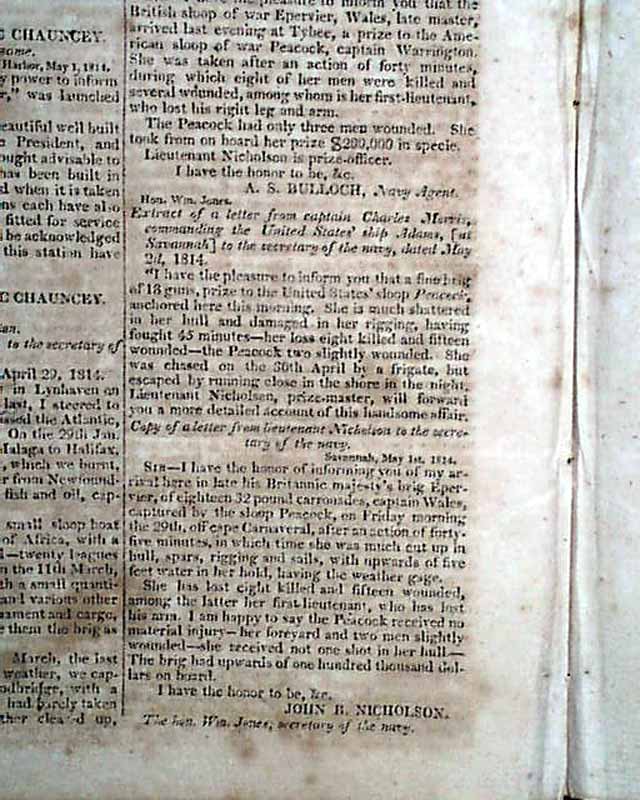 E CHAUNCEY.
some.
Harbor, May 1, 1814.
y power to inform
r," was launched
beautiful well built
e President, and
ought advisable to
has been built in
d when it is taken
ons each have also
fitted for service
l be acknowledged
this station have
C CHAUNCEY.
to the secretary of
April 29, 1814.
r in Lynhaven on
last, I steered to
the Atlantic,
On the 29th Jan.
Malaga to Halifax,
, which we burnt,
er from Newfound-
fish and oil, cap-
small sloop boat
of Africa, with a
l—twenty leagues
n the 11th March,
th a small quanti-
and various other
nament and cargo,
e them the brig as
March, the last
weather, we cap-
odbridge, with a
had barely taken
ther cleared up,
have the pleasure to inform you that the
British sloop of war Epervier, Wales, late master,
arrived last evening at Tybee, a prize to the Ame-
rican sloop of war Peacock, captain Warrington.
She was taken after an action of forty minutes,
during which eight of her men were killed and
several wounded, among whom is her first-lieutenant,
who lost his right leg and arm.
The Peacock had only three men wounded. She
took from on board her prize $200,000 in specie.
Lieutenant Nicholson is prize-officer.
I have the honor to be, &c.
A. S. BULLOCH, Navy Agent.
Hon. Wm. Jones.
Extract of a letter from captain Charles Morris,
commanding the United States' ship Adams, [at
Savannah] to the secretary of the navy, dated May
2d, 1814.
"I have the pleasure to inform you that a fine brig
of 18 guns, prize to the United States' sloop Peacock,
anchored here this morning. She is much shattered
in her hull and damaged in her rigging, having
fought 45 minutes—her loss eight killed and fifteen
wounded—the Peacock two slightly wounded. She
was chased on the 30th April by a frigate, but
escaped by running close in the shore in the night.
Lieutenant Nicholson, prize-master, will forward
you a more detailed account of this handsome affair.
Copy of a letter from lieutenant Nicholson to the secre-
tary of the navy.
Savannah, May 1st. 1814.
SIR—I have the honor of informing you of my ar-
rival here in late his Britannic majesty's brig Eper-
vier, of eighteen 32 pound carronades, captain Wales,
captured by the sloop Peacock, on Friday morning
the 29th, off cape Carnaveral, after an action of forty-
five minutes, in which time she was much cut up in
hull, spars, rigging and sails, with upwards of five
feet water in her hold, having the weather gage.
She has lost eight killed and fifteen wounded,
among the latter her first-lieutenant, who has lost
his arm. I am happy to say the Peacock received no
material injury—her foreyard and two men slightly
wounded—she received not one shot in her hull—
The brig had upwards of one hundred thousand dol-
lars on board.
I have the honor to be, &c.
JOHN B. NICHOLSON.
The hon. Wm. Jones, secretary of the navy.